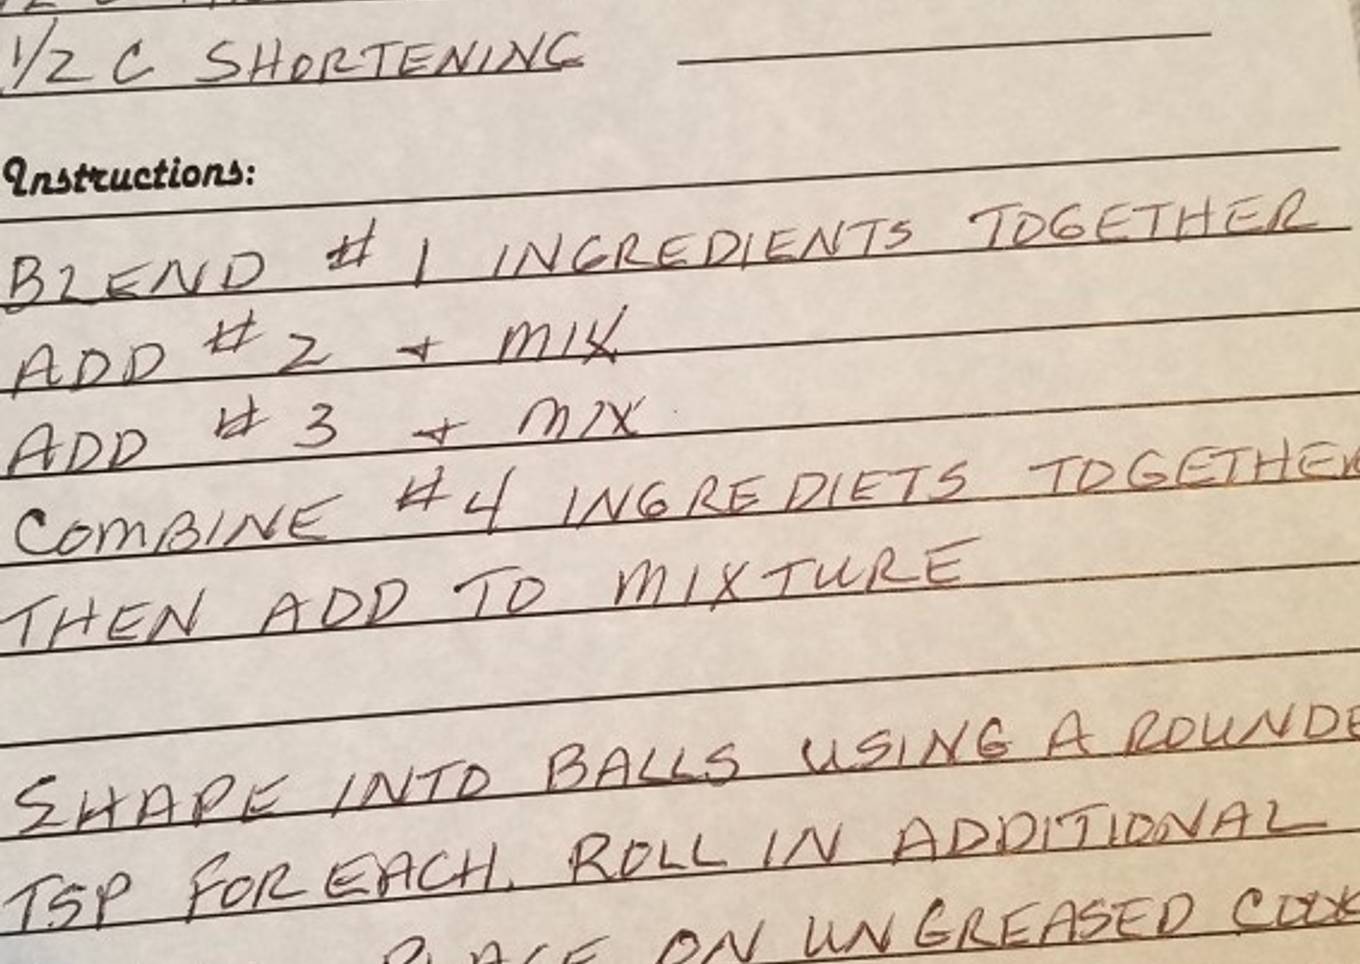 1/2 C SHORTENING
Instructions:
BLEND # 1 INGREDIENTS TOGETHER
ADD # 2 + MIX
ADD # 3 + MIX
COMBINE # 4 INGREDIETS TOGETHER
THEN ADD TO MIXTURE
SHAPE INTO BALLS USING A ROUNDE
TSP FOR EACH. ROLL IN ADDITIONAL
PLACE ON UNGREASED COOK